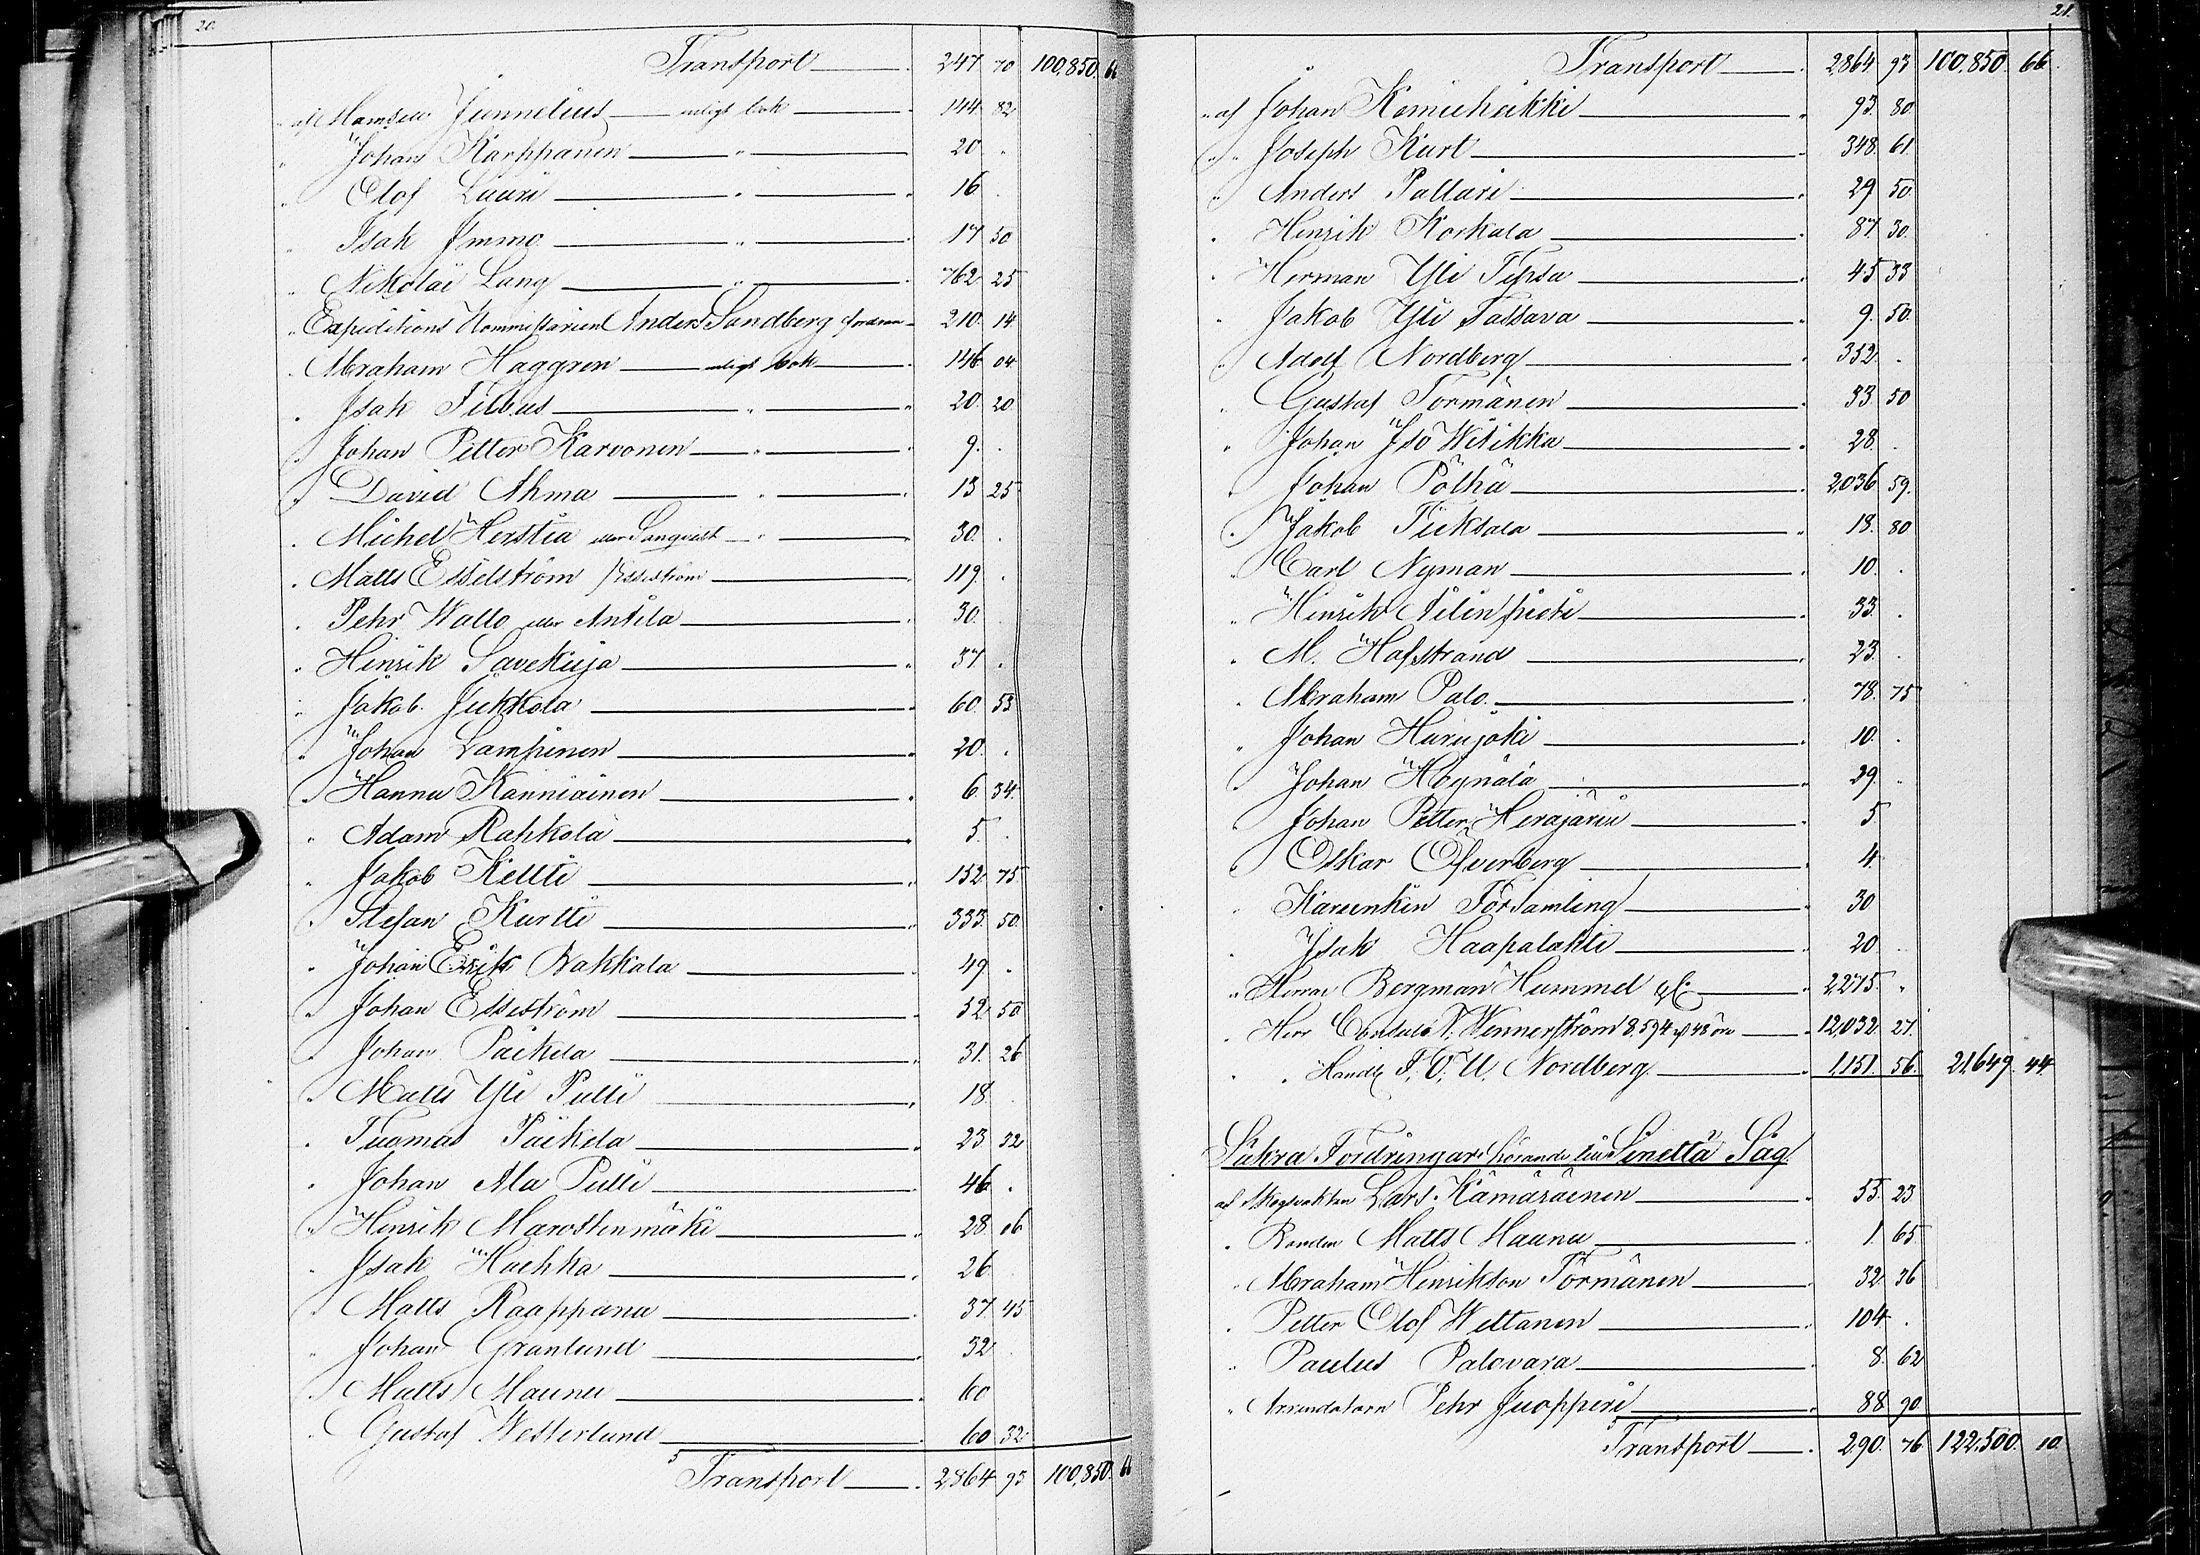 20.
Transport 247 70 100,850. 66
af Mamsell Junnelius enligt bok 144 82
" Johan Karppanen " 20 "
" Olof Lauri " 16 .
" Isak Immo " 17 50
" Nikolai Lang " 762 25
" Expeditions Kommissarien Anders Sandberg fordran 210. 14
" Abraham Haggren enligt bok 146 04
" Isak Filbus " 20. 20
" Johan Petter Karvonen " 9. .
" David Ahma " 13 25
" Michel Herstia eller Sanqvist " 30. .
" Matts Esselström / Esseström 119. .
" Pehr Wallo eller Antila 30. .
" Hinrik Savekuja 37 .
" Jakob Jukkola 60. 53
" Johan Lampinen 20. .
" Hannu Kanniainen 6. 34
" Adam Rahkola 5. .
" Jakob Keltti 152 75
" Stefan Kurtti 333. 50.
" Johan Erik Bakkala 49 .
" Johan Esseström 52 50
" Johan Päikela 31. 26
" Matts Yli Pulli 18
" Tuomas Päikela 23 32
" Johan Ala Pulli 46 .
" Henrik Marostenmäki 28. 06
" Isak Hachka 26
" Matts Kaappana 37. 45
" Johan Granlund 32
" Matts Maunu 60
" Gustaf Westerlund 60 32
Transport 2,864 93 100,850. 66
21.
Transport 2864 93 100,850. 66
" af Johan Kemiheikki 93. 80.
" " Joseph Kurt 348. 61.
" Anders Pallari 29. 50
" Henrik Korkala 87. 30.
" Herman Yli Tepsa 45 33
" Jakob Yli Tassava 9. 50.
" Adolf Nordberg 352. .
" Gustaf Törmänen 33. 50
" Johan Iso Witikka 28. .
" Johan Pölhä 2,036 59.
" Jakob Tiiksala 18. 80
" Carl Nyman 10. .
" Hinrik Ailinpieti 33. .
" M. Hafstrand 23. .
" Abraham Palo 78. 75
" Johan Hurujoki 10. .
" Johan Högnälä 29. .
" Johan Petter Herajärvi 5
" Oskar Öfverberg 4.
" Karunkin Församling 30
" Isak Haapalahti 20 .
" Herrar Bergman Hummel & C. 2,275. "
" Herr Consuln V. Wennerström 8,594 rf 48 öre 12,032 27.
" " Handl F. O. U. Nordberg 1,151. 56. 21,649 44
Säkra Fordringar hörande till Sinettä Såg
af Skogvaktaren Lars Kämäräinen 55. 23
" Bonden Matts Maunu 1. 65
" Abraham Hinrikson Törmänen 32. 36
" Petter Olof Wettanen 104 .
" Paulus Palovara 8. 62
" Arrendatorn Pehr Juopperi 88. 90
Transport 290. 76 122,500. 10.